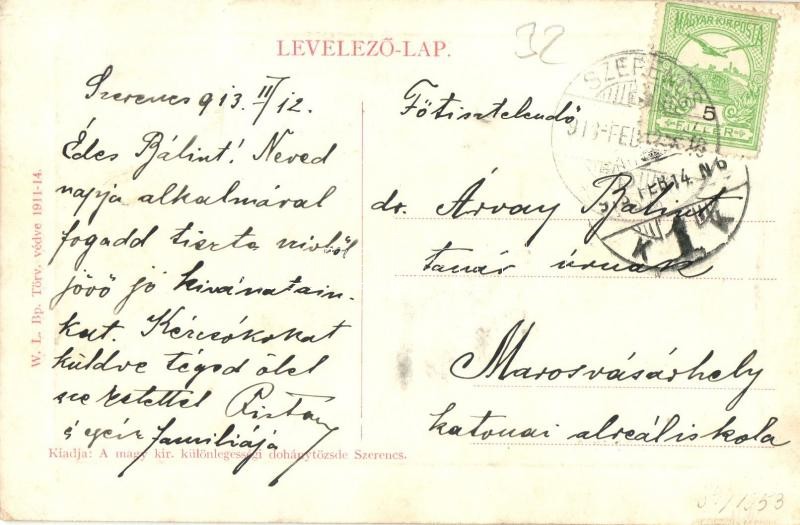 32
LEVELEZŐ-LAP.
MAGYAR KIR. POSTA
5
FILLÉR
SZERENCS
913-FEB
FEB 14. N 6
K 1 K
Szerencs 913. II/12.
Édes Bálint! Neved
napja alkalmával
fogadd tiszta szivből
jövö jó kivánatain-
kat. Kézcsókokat
küldve téged ölel
szeretettel
és egész familiája
Főtisztelendő
dr. Árvay Bálint
tanár úrnak
Marosvásárhely
katonai alreáliskola
W. L. Bp. Törv. védve 1911-14.
Kiadja: A magy. kir. különlegességi dohánytözsde Szerencs.